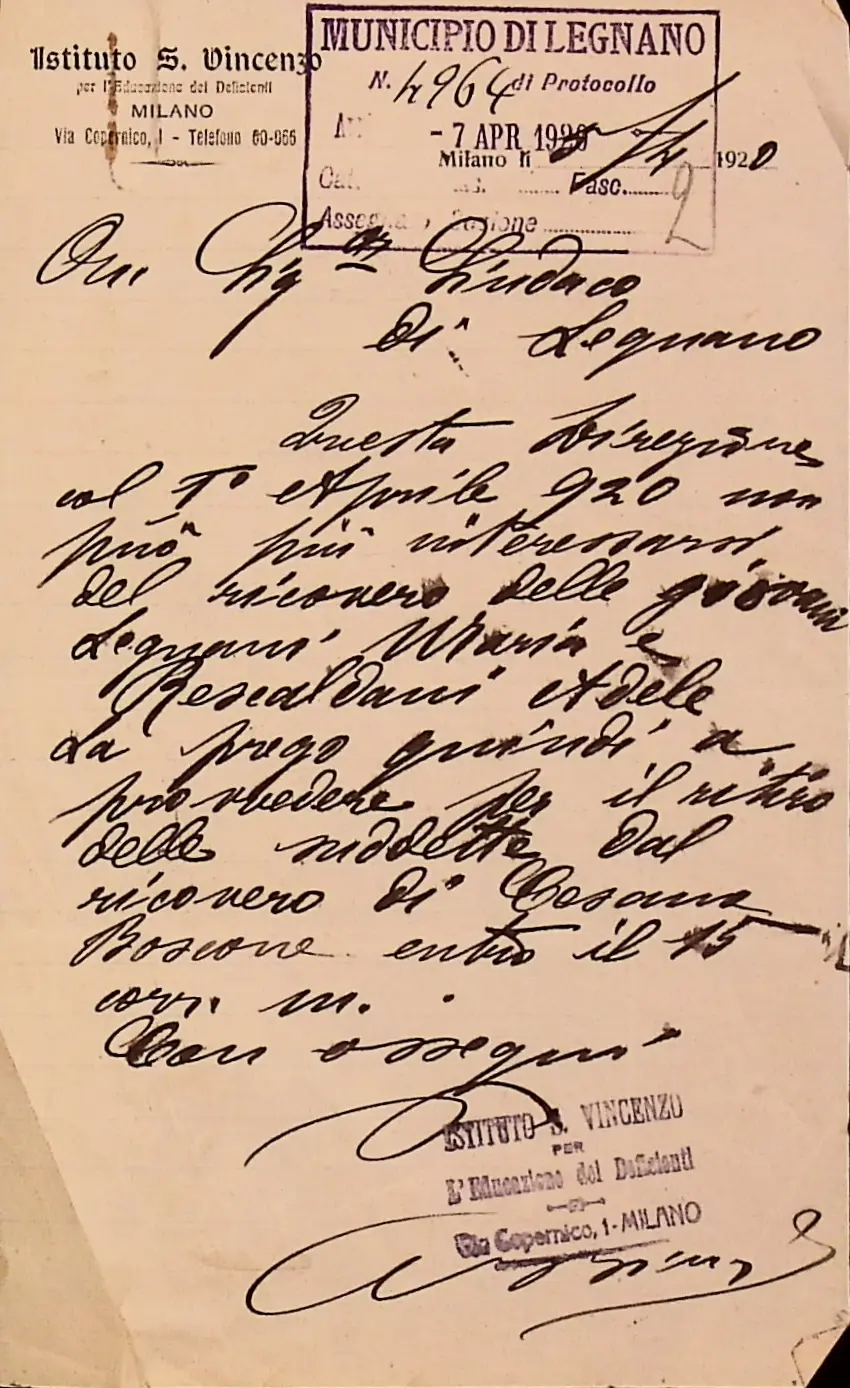 Istituto S. Vincenzo
per l'Educazione dei Deficienti
MILANO
Via Copernico, 1 - Telefono 60-066
MUNICIPIO DI LEGNANO
N. 4964 di Protocollo
- 7 APR 1920
Milano li 5/4 1920
Cat. Fasc. 2
On Sigr Sindaco
di Legnano
Questa Direzione
col 1° Aprile 920 non
può più interessarsi
del ricovero delle giovani
Legnani Maria e
Rescaldani Adele
La prego quindi a
provvedere per il ritiro
delle suddette dal
ricovero di Cesano
Boscone entro il 15
corr. m.
Con ossequi
ISTITUTO S. VINCENZO
PER
L'Educazione dei Deficienti
Via Copernico, 1 - MILANO